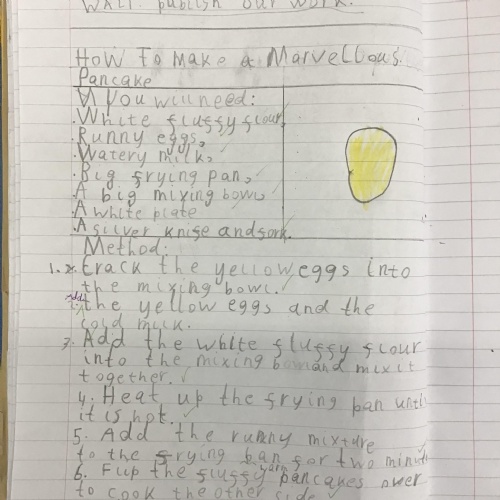 WALT: publish our work.
How To make a Marvellous
Pancake
You will need:
.White fluffy flour,
.Runny eggs,
.Watery milk,
.Big frying pan,
.A big mixing bowl,
.A white plate
.A silver knife and fork.
Method:
1. Crack the yellow eggs into
the mixing bowl.
2. Add the yellow eggs and the
cold milk.
3. Add the white fluffy flour
into the mixing bowl and mix it
together.
4. Heat up the frying pan until
it is hot.
5. Add the runny mixture
to the frying pan for two minute
6. Flip the fluffy yam pancakes over
to cook the other side